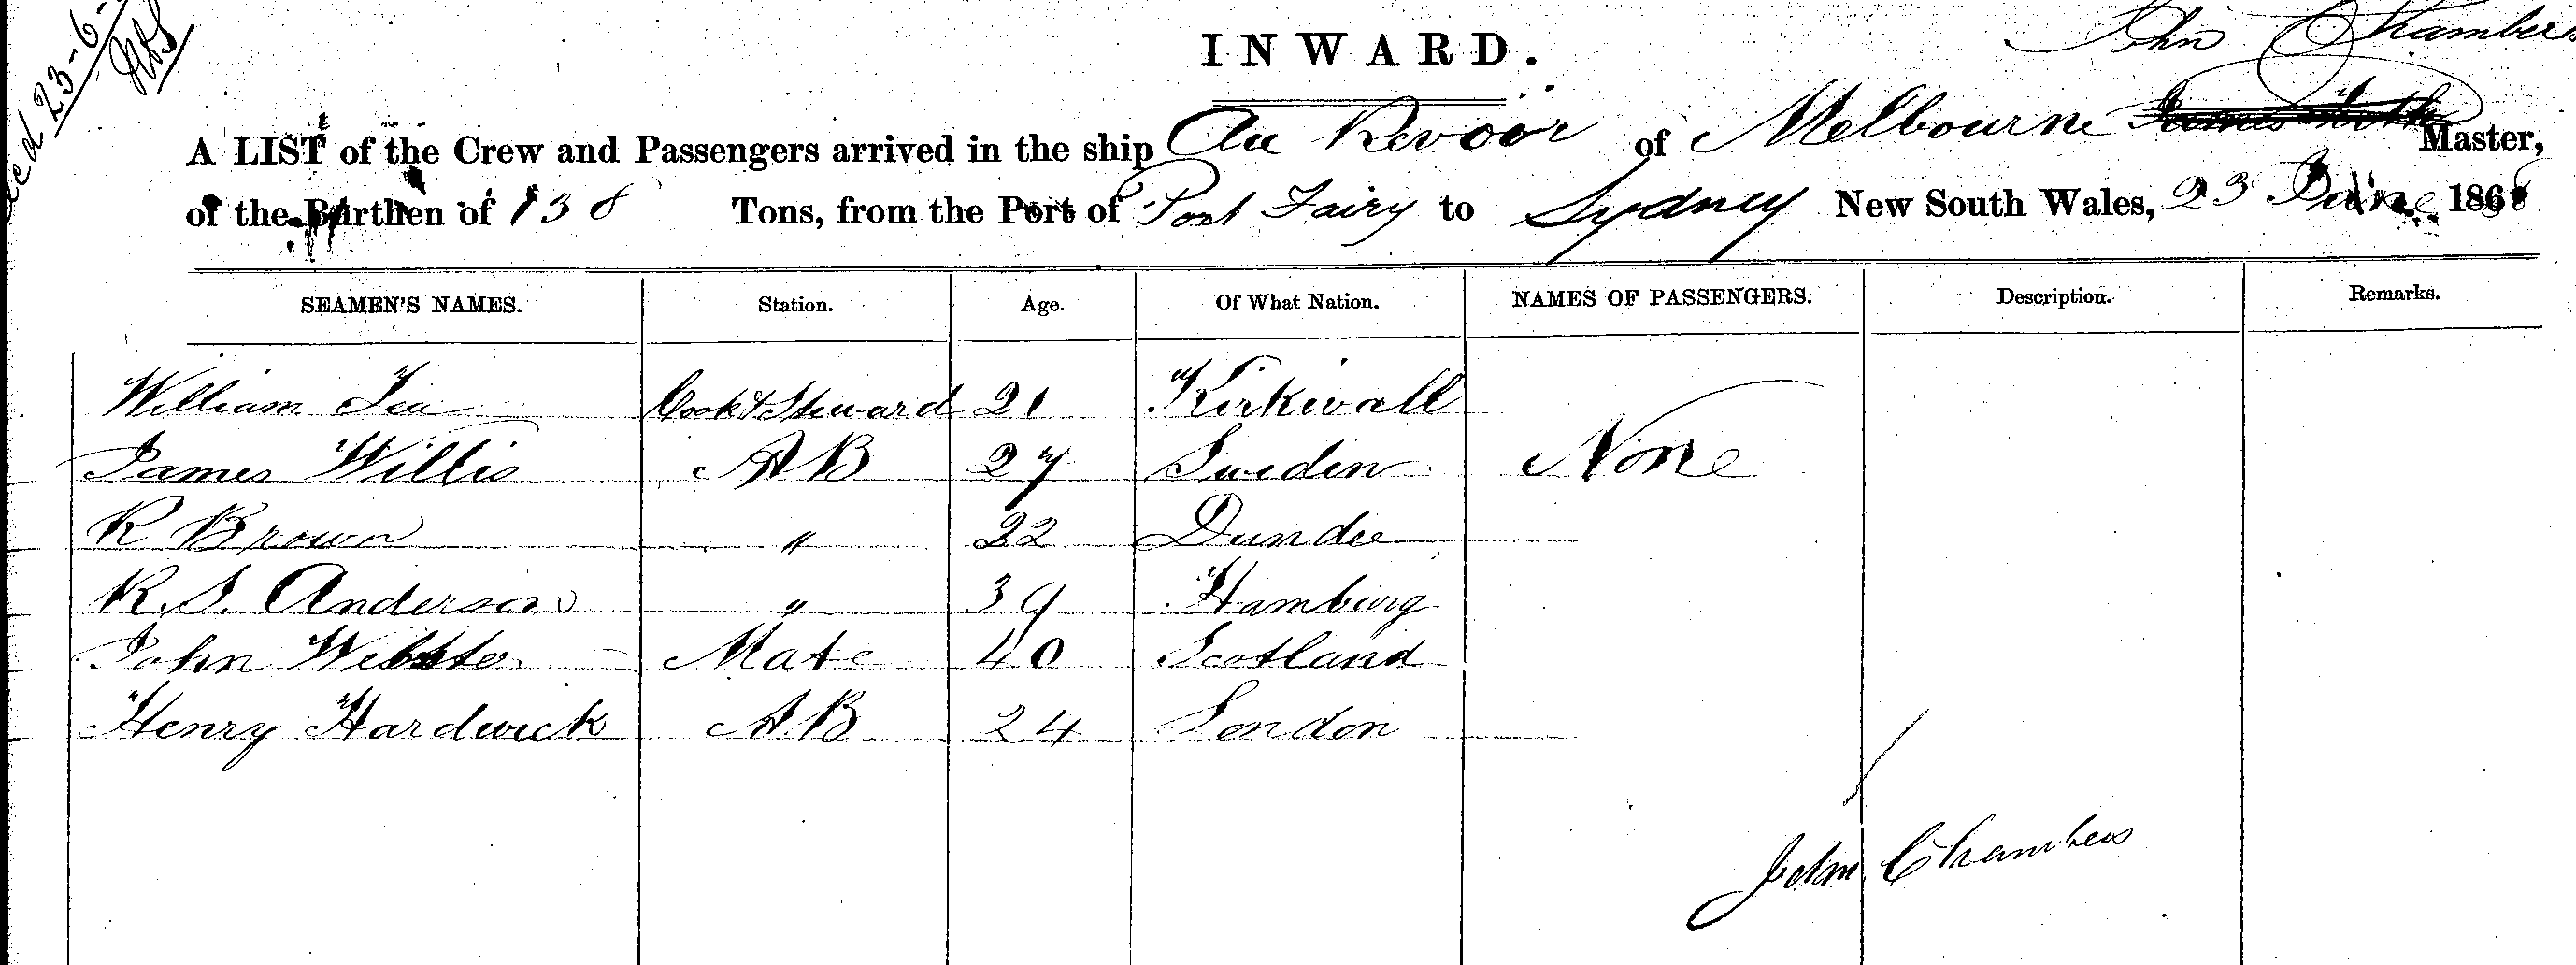 23-6-
John Chambers
INWARD.
A LIST of the Crew and Passengers arrived in the ship Au Revoir of Melbourne Master,
of the Burthen of 138 Tons, from the Port of Port Fairy to Sydney New South Wales, 23 June 1868
SEAMEN'S NAMES. Station. Age. Of What Nation. NAMES OF PASSENGERS. Description. Remarks.
William Cook & Steward 21 Kirkwall
James Willis AB 27 Sweden None
R Brown " 22 Dundee
R. S. Anderson " 39 Hamburg
John Webster Mate 40 Scotland
Henry Hardwick AB 24 London
John Chambers